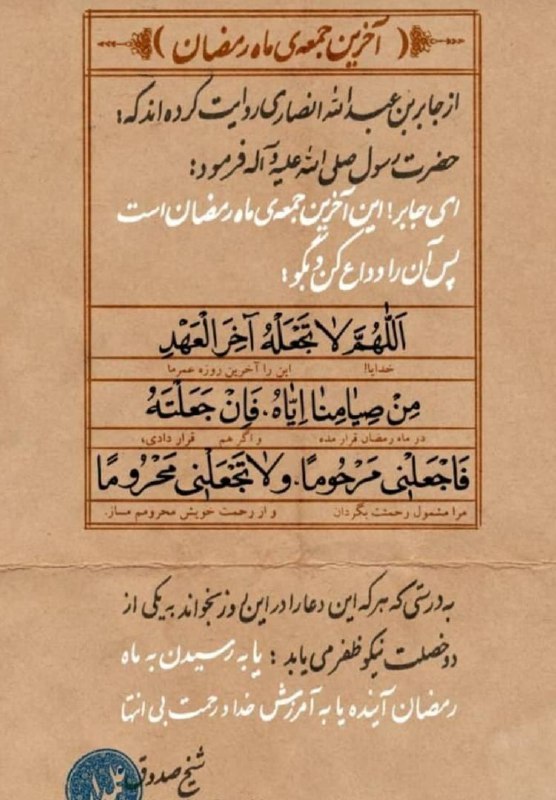 آخرین جمعه‌ی ماه رمضان
از جابر بن عبدالله انصاری روایت کرده‌اند که:
حضرت رسول صلی الله علیه و آله فرمود:
ای جابر! این آخرین جمعه‌ی ماه رمضان است
پس آن را وداع کن و بگو:
اَللّٰهُمَّ لَا تَجْعَلْهُ آخِرَ الْعَهْدِ
خدایا! این را آخرین روزه عمرما
مِنْ صِیَامِنَا اِیَّاهُ. فَاِنْ جَعَلْتَهُ
در ماه رمضان قرار مده و اگر هم قرار دادی،
فَاجْعَلْنِی مَرْحُومًا. وَلَا تَجْعَلْنِی مَحْرُومًا
مرا مشمول رحمتت بگردان و از رحمت خویش محرومم مساز.
به درستی که هر که این دعا را در این روز بخواند به یکی از
دو خصلت نیکو ظفر می یابد : یا به رسیدن به ماه
رمضان آینده یا به آمرزش خدا و رحمت بی انتها
شیخ صدوق